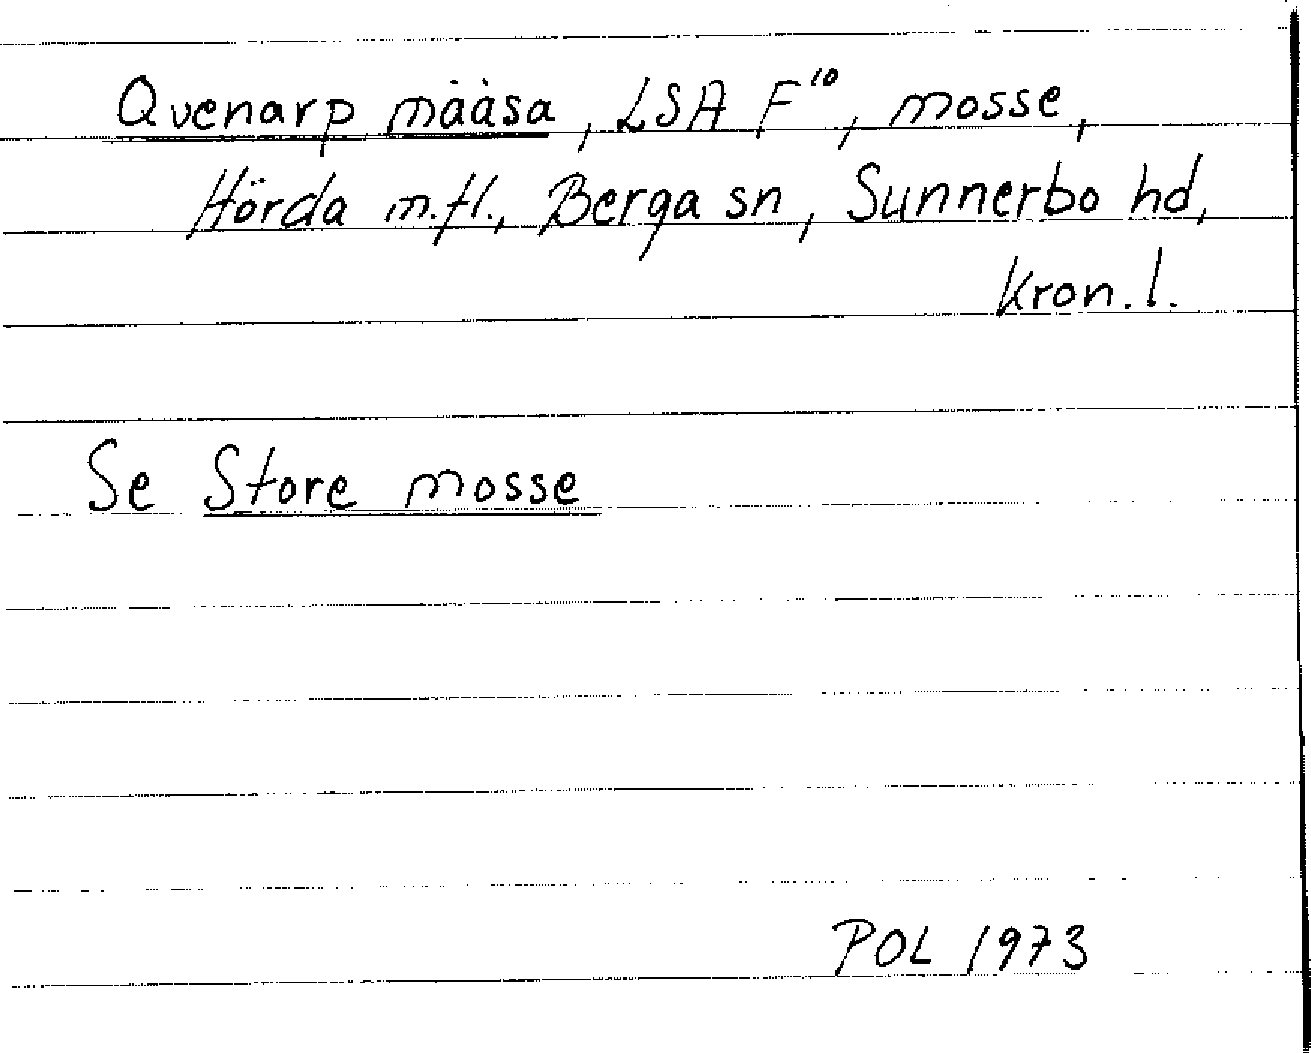 Qvenarp mååsa, LSA F¹⁰, mosse,
Hörda m.fl., Berga sn, Sunnerbo hd,
Kron.l.
Se Store mosse
POL 1973